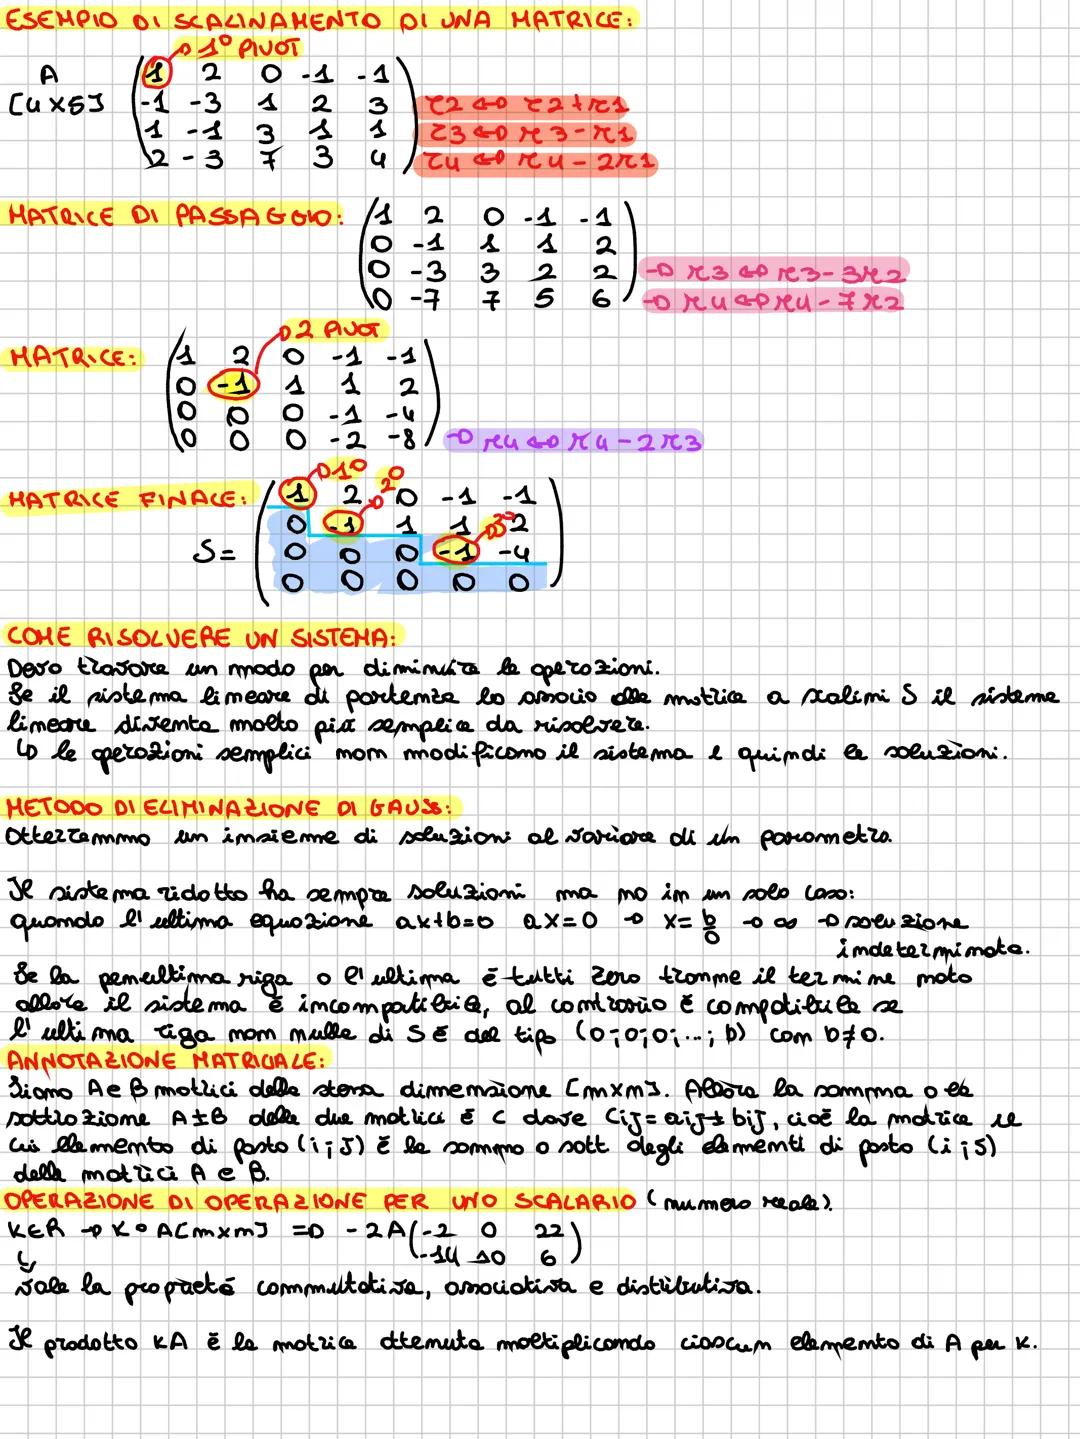 ESEMPIO DI SCALINAMENTO DI UNA MATRICE:
1° PIVOT
A 1 2 0 -1 -1
[4x5] -1 -3 1 2 3 r2 ↔ r2+r1
1 -1 3 1 1 r3 ↔ r3-r1
2 -3 7 3 4 r4 ↔ r4-2r1
MATRICE DI PASSAGGIO: 1 2 0 -1 -1
0 -1 1 1 2
0 -3 3 2 2 → r3 ↔ r3-3r2
0 -7 7 5 6 → r4 ↔ r4-7r2
2 PIVOT
MATRICE: 1 2 0 -1 -1
0 -1 1 1 2
0 0 0 -1 -4
0 0 0 -2 -8 → r4 ↔ r4-2r3
1° 2°
MATRICE FINALE: 1 2 0 -1 -1
0 -1 1 1 3° 2
S= 0 0 0 -1 -4
0 0 0 0 0
COME RISOLVERE UN SISTEMA:
Devo trovare un modo per diminuire le operazioni.
Se il sistema lineare di partenza lo associo alla matrice a scalini S il sistema
lineare diventa molto più semplice da risolvere.
↳ le operazioni semplici non modificano il sistema e quindi le soluzioni.
METODO DI ELIMINAZIONE DI GAUSS:
Otterremmo un insieme di soluzioni al variare di un parametro.
Il sistema ridotto ha sempre soluzioni ma no in un solo caso:
quando l'ultima equazione ax+b=0 ax=0 → x= b/0 → ∞ → soluzione
indeterminata.
Se la penultima riga o l'ultima è tutti zero tranne il termine noto
allora il sistema è incompatibile, al contrario è compatibile se
l'ultima riga non nulla di S è del tipo (0;0;0;...;b) con b≠0.
ANNOTAZIONE MATRICIALE:
Siano A e B matrici della stessa dimensione [mxn]. Allora la somma o la
sottrazione A±B delle due matrici è C dove Cij=aij±bij, cioè la matrice il
cui elemento di posto (i;j) è la somma o sott degli elementi di posto (i;j)
delle matrici A e B.
OPERAZIONE DI OPERAZIONE PER UNO SCALARIO (numero reale).
K∈R → K∘A[mxn] => -2A -2 0 22
-14 10 6
↳
vale la proprietà commutativa, associativa e distributiva.
Il prodotto KA è la matrice ottenuta moltiplicando ciascun elemento di A per K.